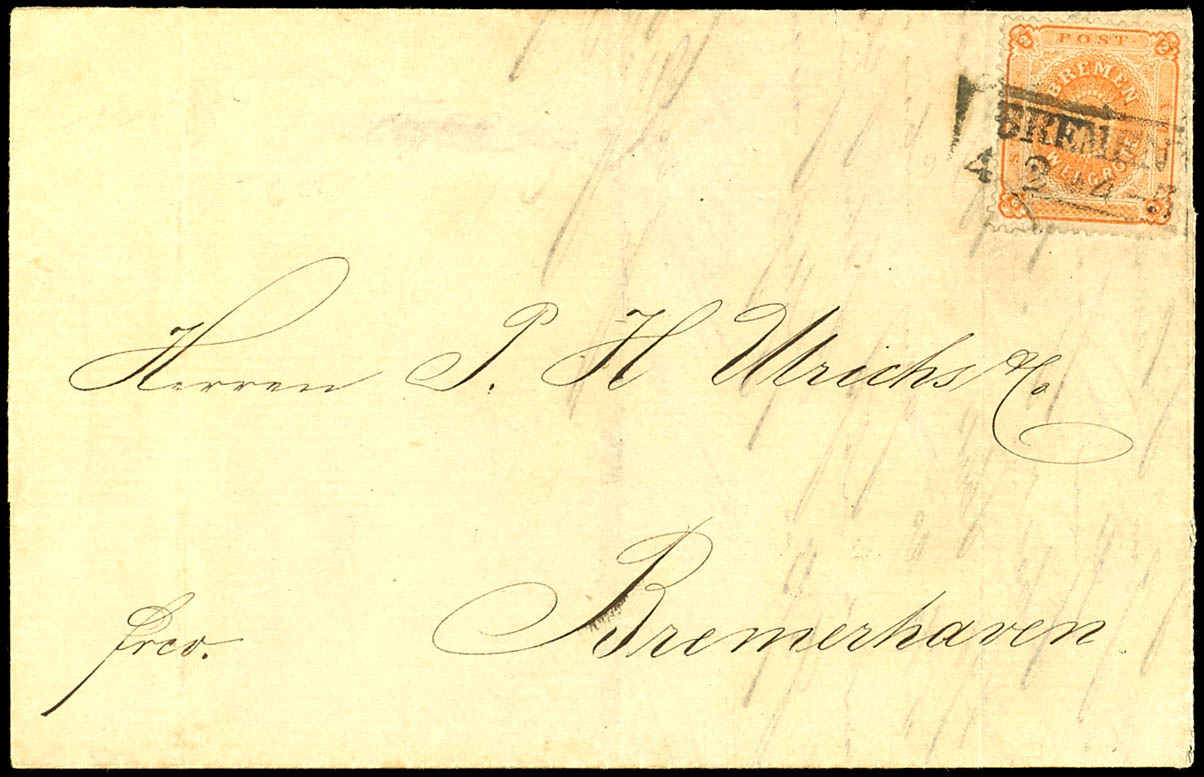 POST
2 2
BREMEN
ZWEI GROTE
BREMEN
4 2 * 4-5
Herren J. H Ulrichs & C.
Bremerhaven
frco.